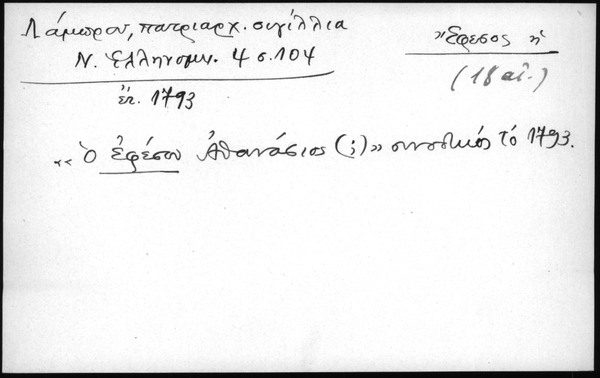 Λάμπρου, πατριαρχ. σιγίλλια
Ν. Ἑλληνομν. 4 σ. 104
ἔτ. 1793
Ἔφεσος ἡ
(18 αἰ.)
«Ὁ Ἐφέσου Ἀθανάσιος (;)» συνοδικός τό 1793.